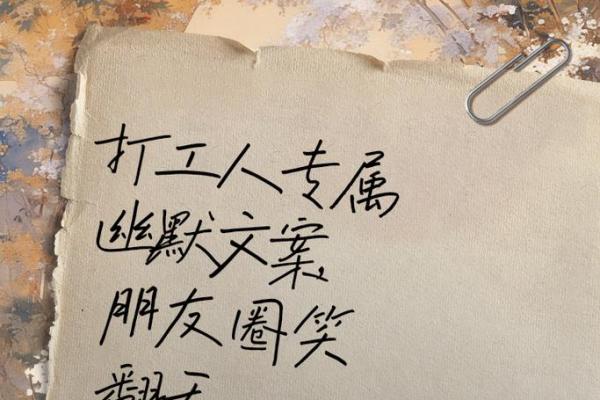 打工人专属
幽默文案,
朋友圈笑
翻天